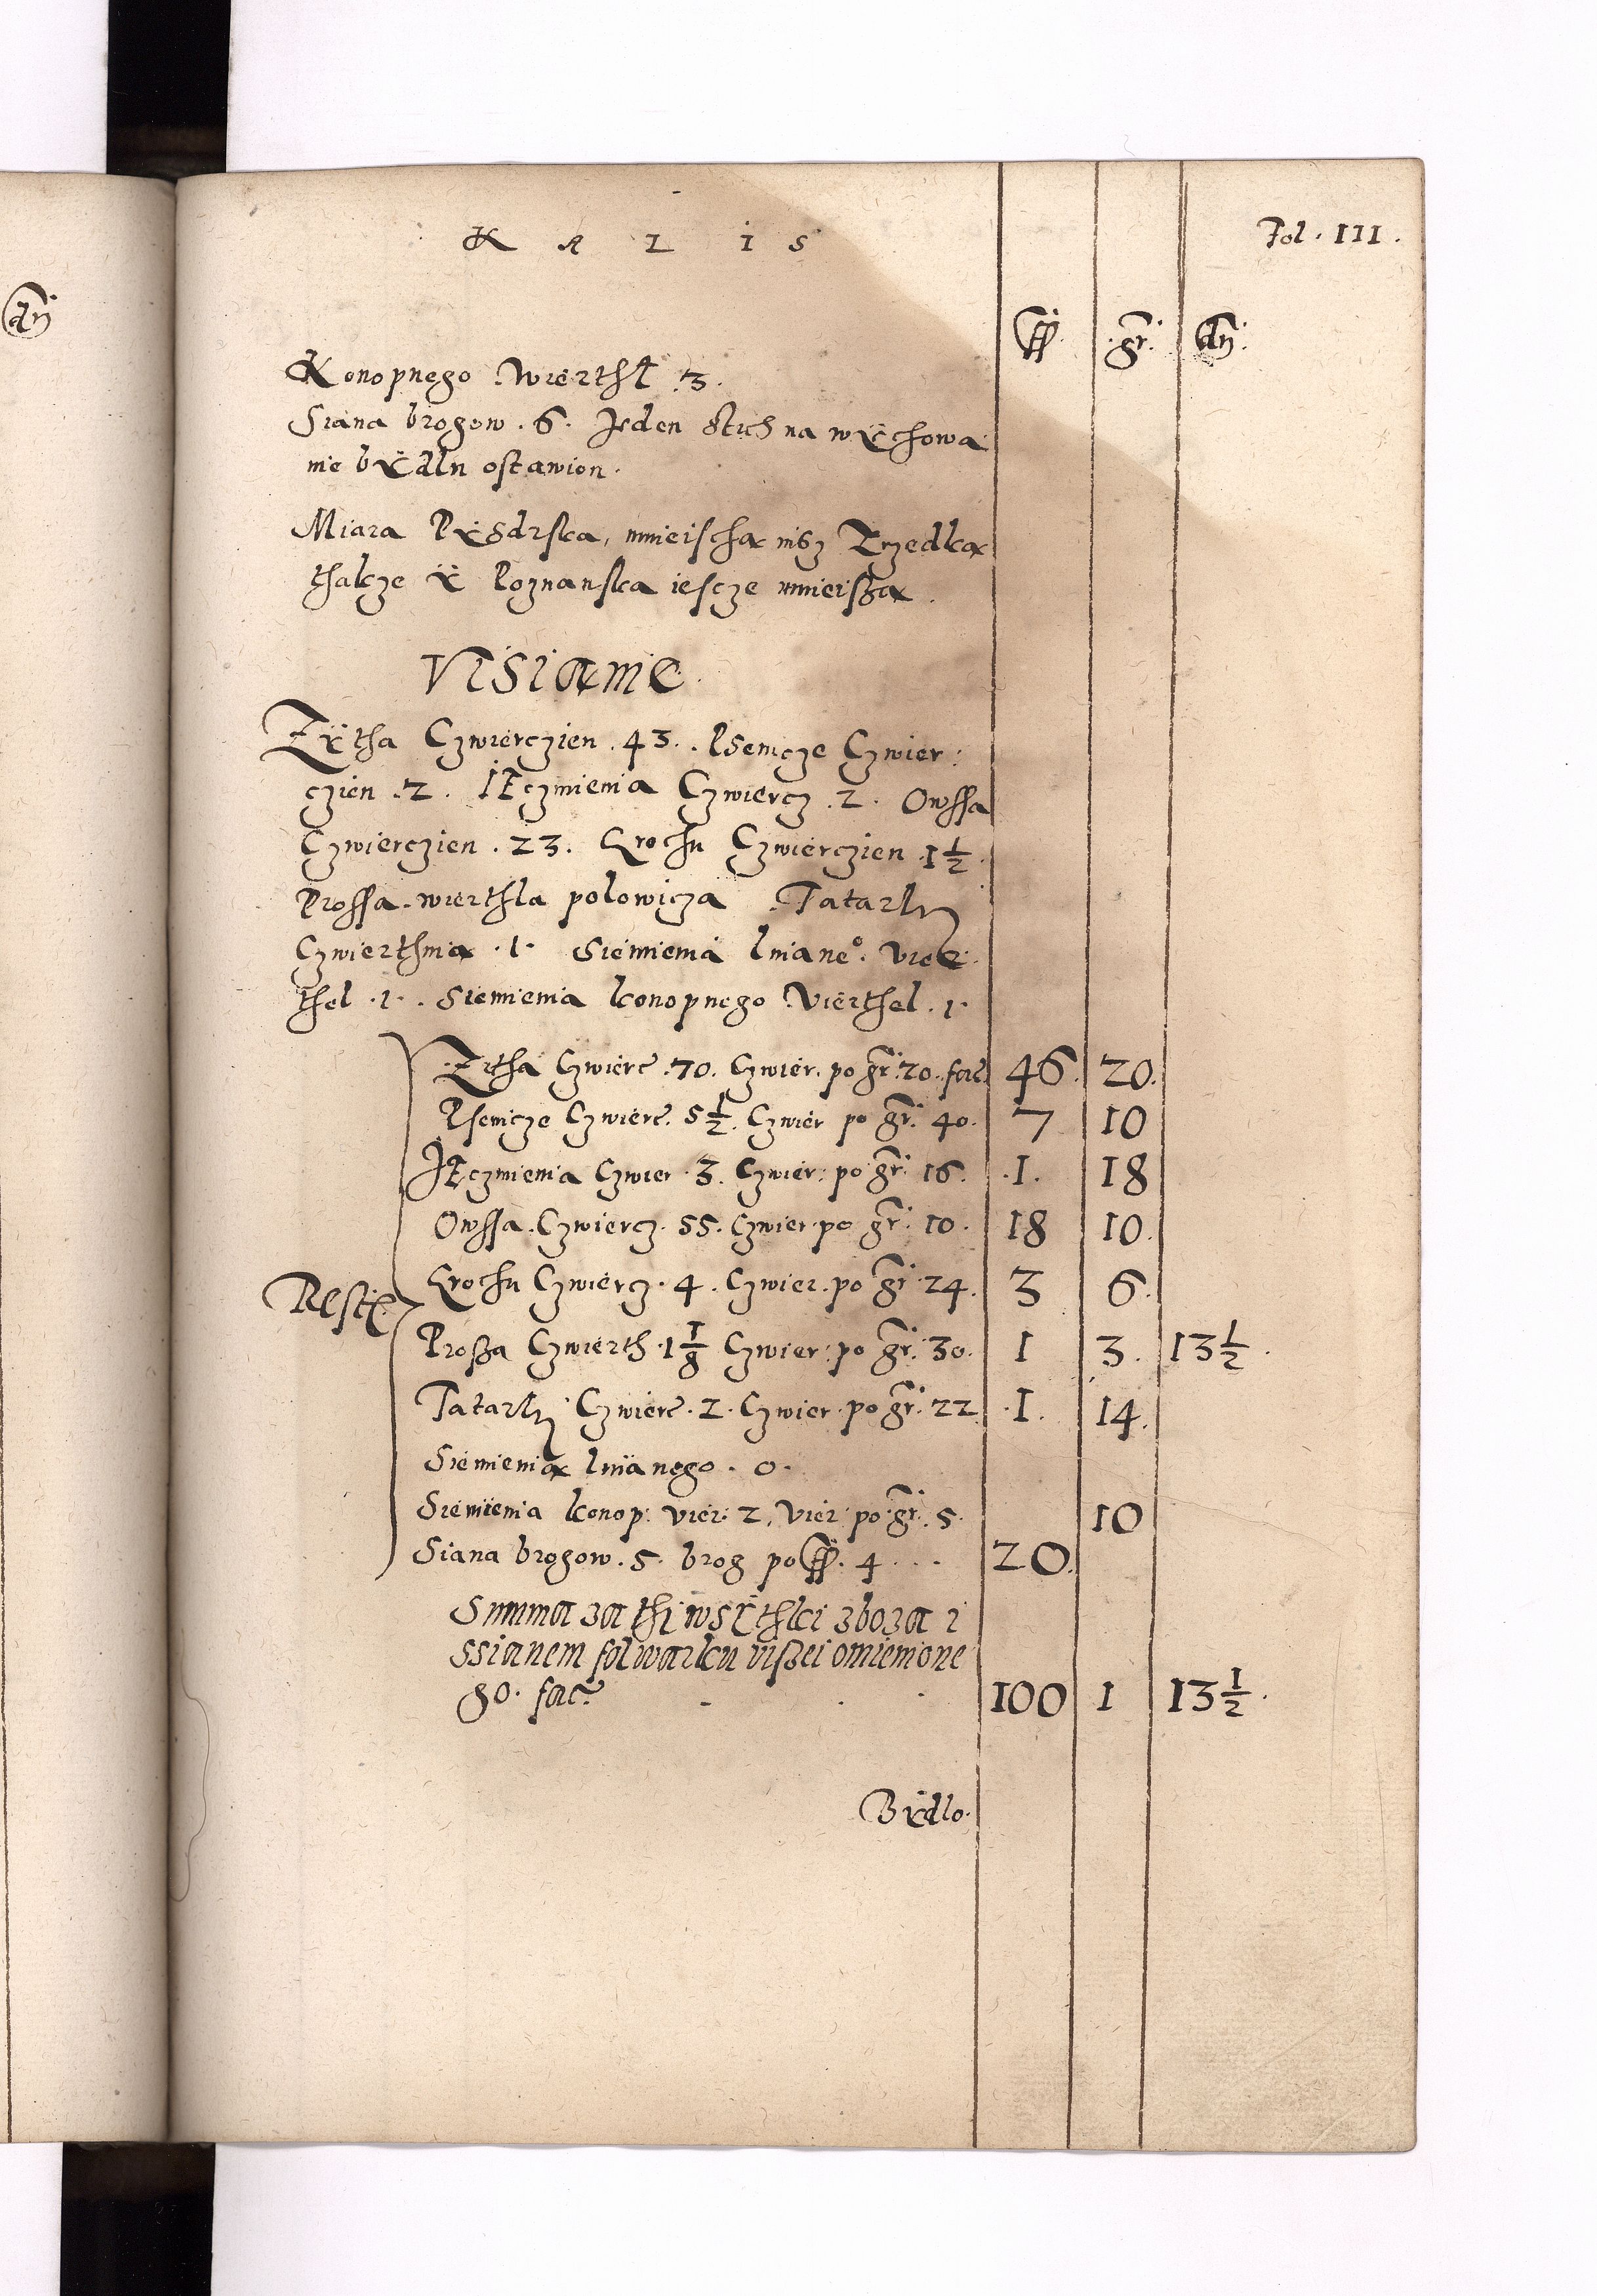 K A L I S
Fol. 111.
dń
ff gr. dń.
Konopnego wierthl 3.
Siana brogow. 6. Jeden stich na wÿchowa
nie bÿdln ostawion.
Miara Pÿsdrska, mnieischa nisz Srzedzka
thakze ÿ Poznanska iescze mnieisza.
VISIANIE
Zÿtha Czwierczien. 43. Psenicze Czwier:
czien. 2. Jęczmienia Czwiercz. 2. Owssa
Czwierczien. 23. Grochu Czwierczien. 1 1/2.
Prossa. wierthla polowicza Tatarky
Czwierthnia. 1. Siemienia lniane°. vier
thel. 1. Siemienia konopnego Vierthel. 1.
Zitha Czwierc. 70. Czwier. po gr. 20. fac. 46. 20.
Psenicze Czwierc. 5 1/2. Czwier po gr. 40. 7 10
Jęczmienia Czwier. 3. Czwier. po gr. 16. 1. 18
Owssa. Czwiercz. 55. Czwier. po gr. 10. 18 10.
Grochu Czwiercz. 4. Czwier. po gr 24. 3 6.
Rest.
Prosza Czwierth. 1 1/8 Czwier. po gr. 30. 1 3. 13 1/2.
Tatarky Czwierc. 2. Czwier. po gr. 22 1. 14.
Siemienia lnianego. 0.
Siemienia konop. vier. 2. vier. po gr. 5. 10
Siana brogow. 5. brog po ff. 4 20.
Summa za thi wsÿthki zboza i
ssianem folwarku viszei omienione
go. fac. 100 1 13 1/2.
Bÿdlo.